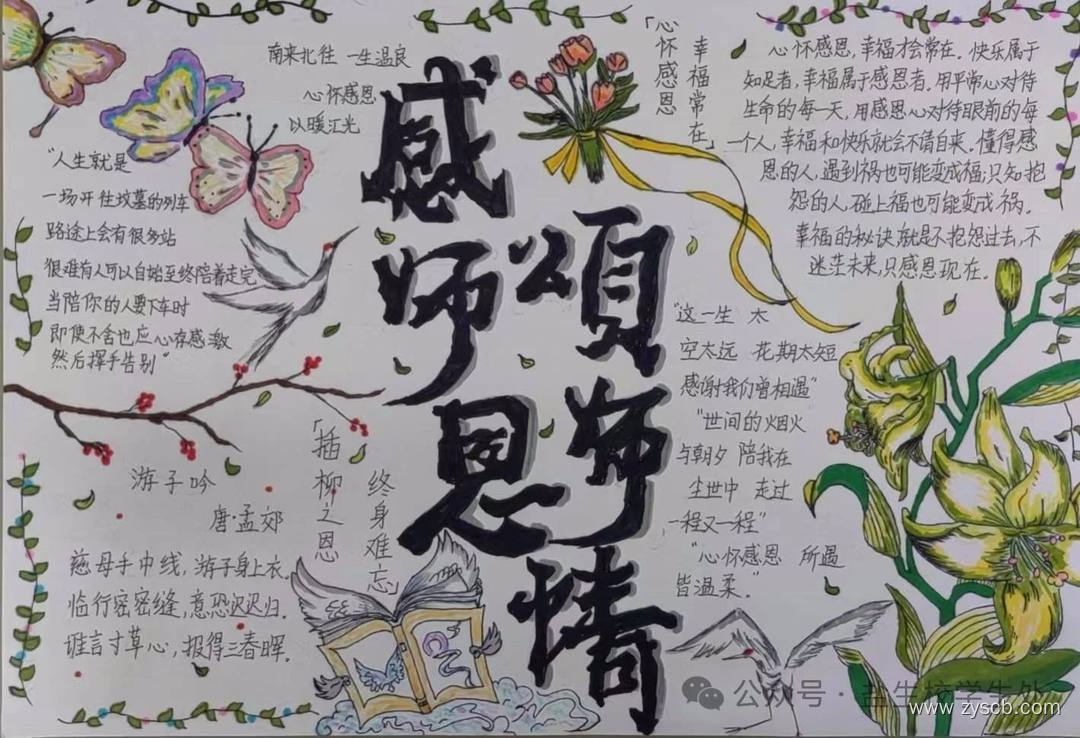 南来北往 一生温良
心怀感恩
以暖汇光
"人生就是
一场开往坟墓的列车
路途上会有很多站
很难有人可以自始至终陪着走完
当陪你的人要下车时
即使不舍也应心存感激
然后挥手告别"
感师恩
頌师情
「心怀感恩
幸福常在」
心怀感恩,幸福才会常在。快乐属于
知足者,幸福属于感恩者。用平常心对待
生命的每一天,用感恩心对待眼前的每
一个人,幸福和快乐就会不请自来。懂得感
恩的人,遇到祸也可能变成福;只知抱
怨的人,碰上福也可能变成祸。
幸福的秘诀就是不抱怨过去,不
迷茫未来,只感恩现在。
"这一生 太
空太远 花期太短
感谢我们曾相遇"
"世间的烟火
与朝夕 陪我在
尘世中 走过
一程又一程"
"心怀感恩 所遇
皆温柔。"
「插柳之恩
终身难忘
游子吟
唐·孟郊
慈母手中线,游子身上衣
临行密密缝,意恐迟迟归.
谁言寸草心,报得三春晖.
公众号·益生校学生处
www.zyscb.com